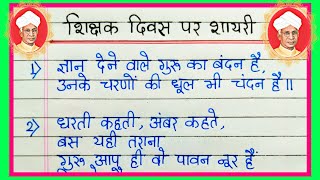 शिक्षक दिवस पर शायरी
1) ज्ञान देने वाले गुरू का बंदन है,
उनके चरणों की धूल भी चंदन है॥
2) धरती कहती, अंबर कहते,
बस यही तराना
गुरू आप ही वो पावन नूर हैं